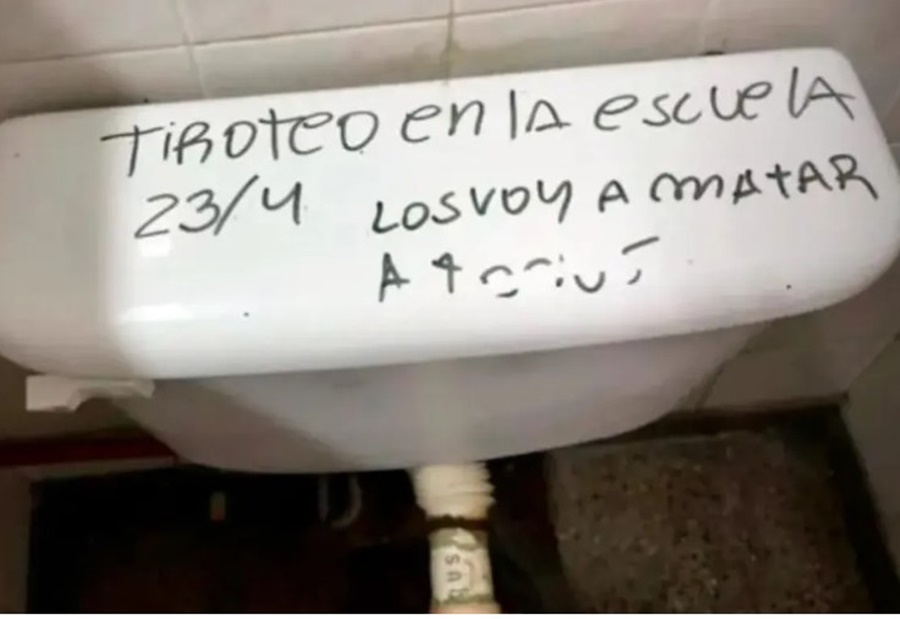 TIROTEO en lA escuelA
23/4 LOS VOY A MATAR
A